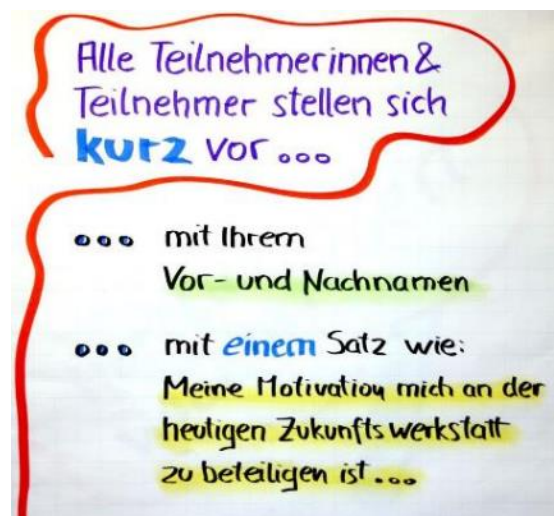 Alle Teilnehmerinnen &
Teilnehmer stellen sich
kurz vor ...
... mit Ihrem
Vor- und Nachnamen
... mit einem Satz wie:
Meine Motivation mich an der
heutigen Zukunftswerkstatt
zu beteiligen ist ...